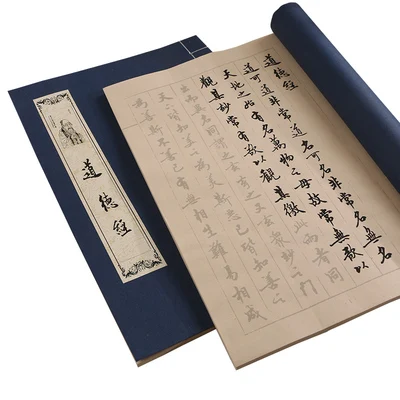 道德經
道德經
道可道非常道名可名非常名無名
天地之始有名萬物之母故常無欲以
觀其妙常有欲以觀其徼此兩者同
出而異名同謂之玄玄之又玄眾妙之門
天下皆知美之為美斯惡已皆知善之
為善斯不善已有無相生難易相成